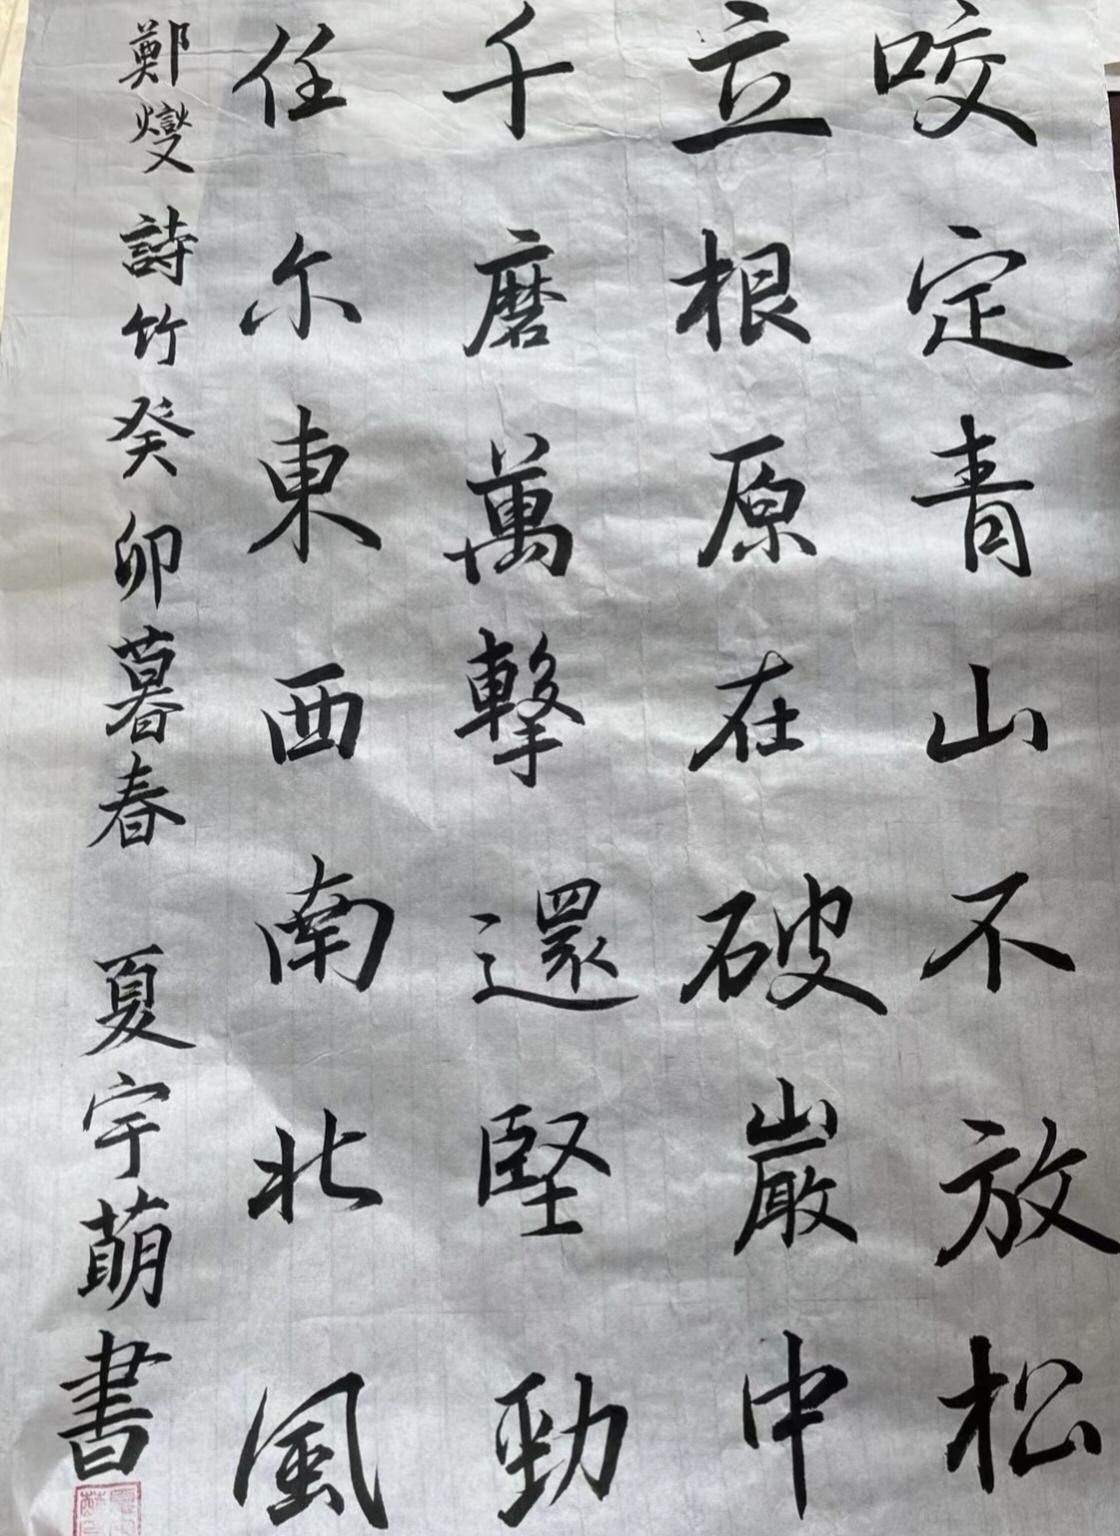 咬定青山不放松
立根原在破巖中
千磨萬擊還堅勁
任尔東西南北風
鄭燮詩竹癸卯暮春 夏宇萌書